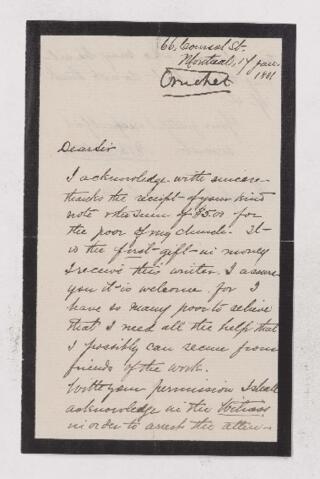 66, Cousol St.
Montreal, 17 Jan. 1881
Cruchet
Dear Sir
I acknowledge with sincere
thanks the receipt of your kind
note & the sum of $5.00 for
the poor of my church. It
is the first gift in money
I receive this winter. I assure
you it is welcome for I
have so many poor to relieve
that I need all the help that
I possibly can secure from
friends of the work.
With your permission I shall
acknowledge in the Witness
in order to arrest the atten-